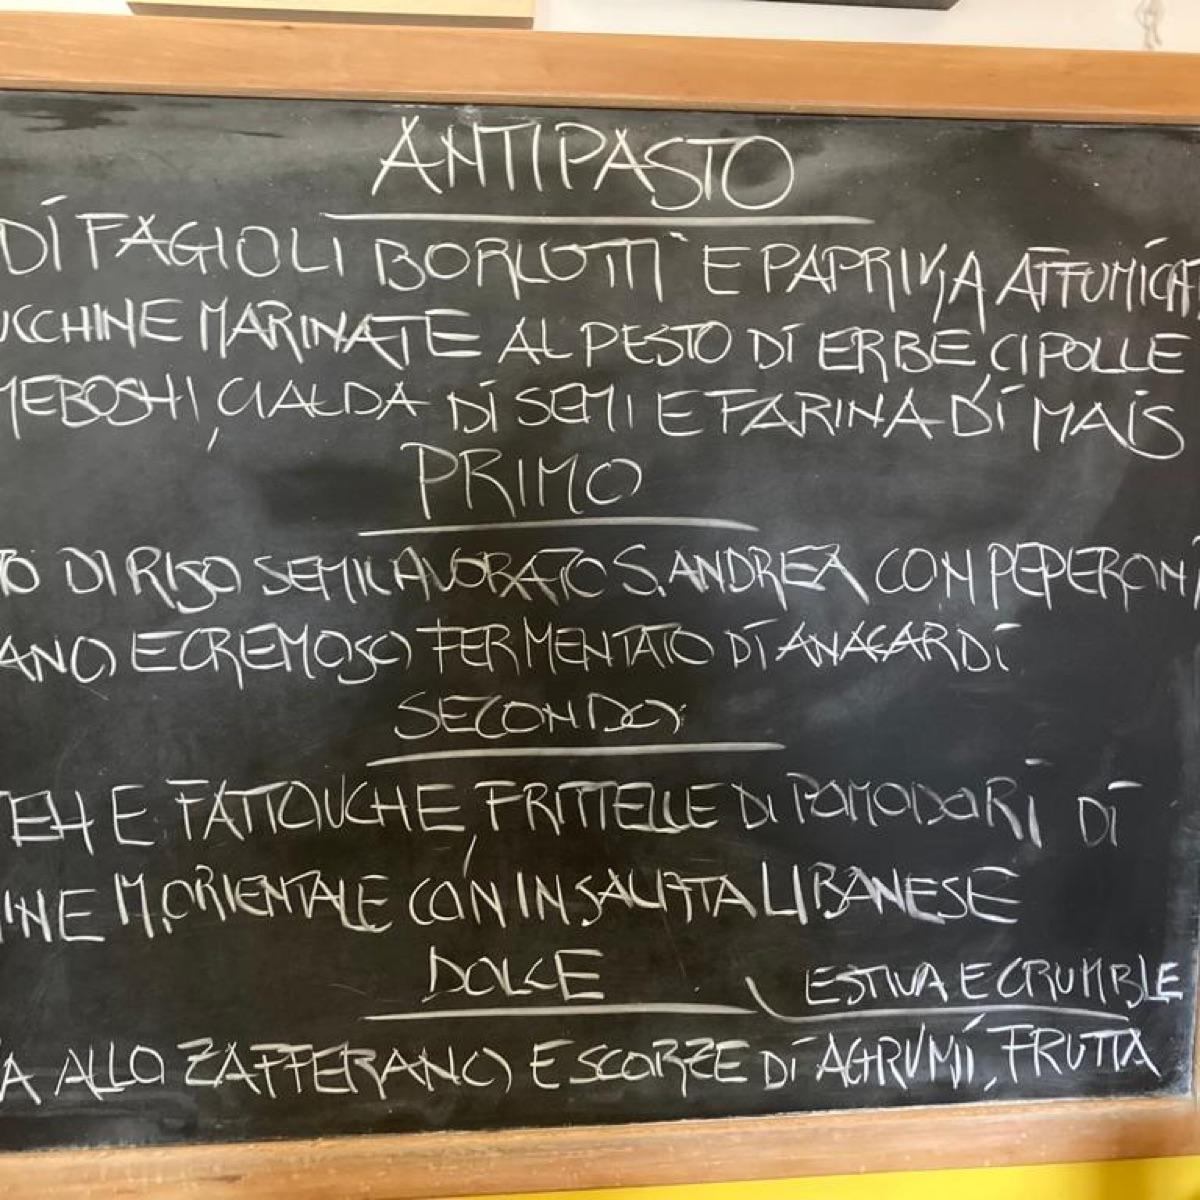 ANTIPASTO
DI FAGIOLI BORLOTTI E PAPRIKA AFFUMICAT
UCCHINE MARINATE AL PESTO DI ERBE, CIPOLLE
MEBOSHI, CIALDA DI SEMI E FARINA DI MAIS
PRIMO
TO DI RISO SEMILAVORATO S. ANDREA CON PEPERONI
ANO E CREMOSO FERMENTATO DI ANACARDI
SECONDO
TEH E FATTOUCHE, FRITTELLE DI POMODORI DI
INE M.ORIENTALE CON INSALATA LIBANESE
DOLCE
ESTIVA E CRUMBLE
A ALLO ZAFFERANO E SCORZE DI AGRUMI, FRUTTA